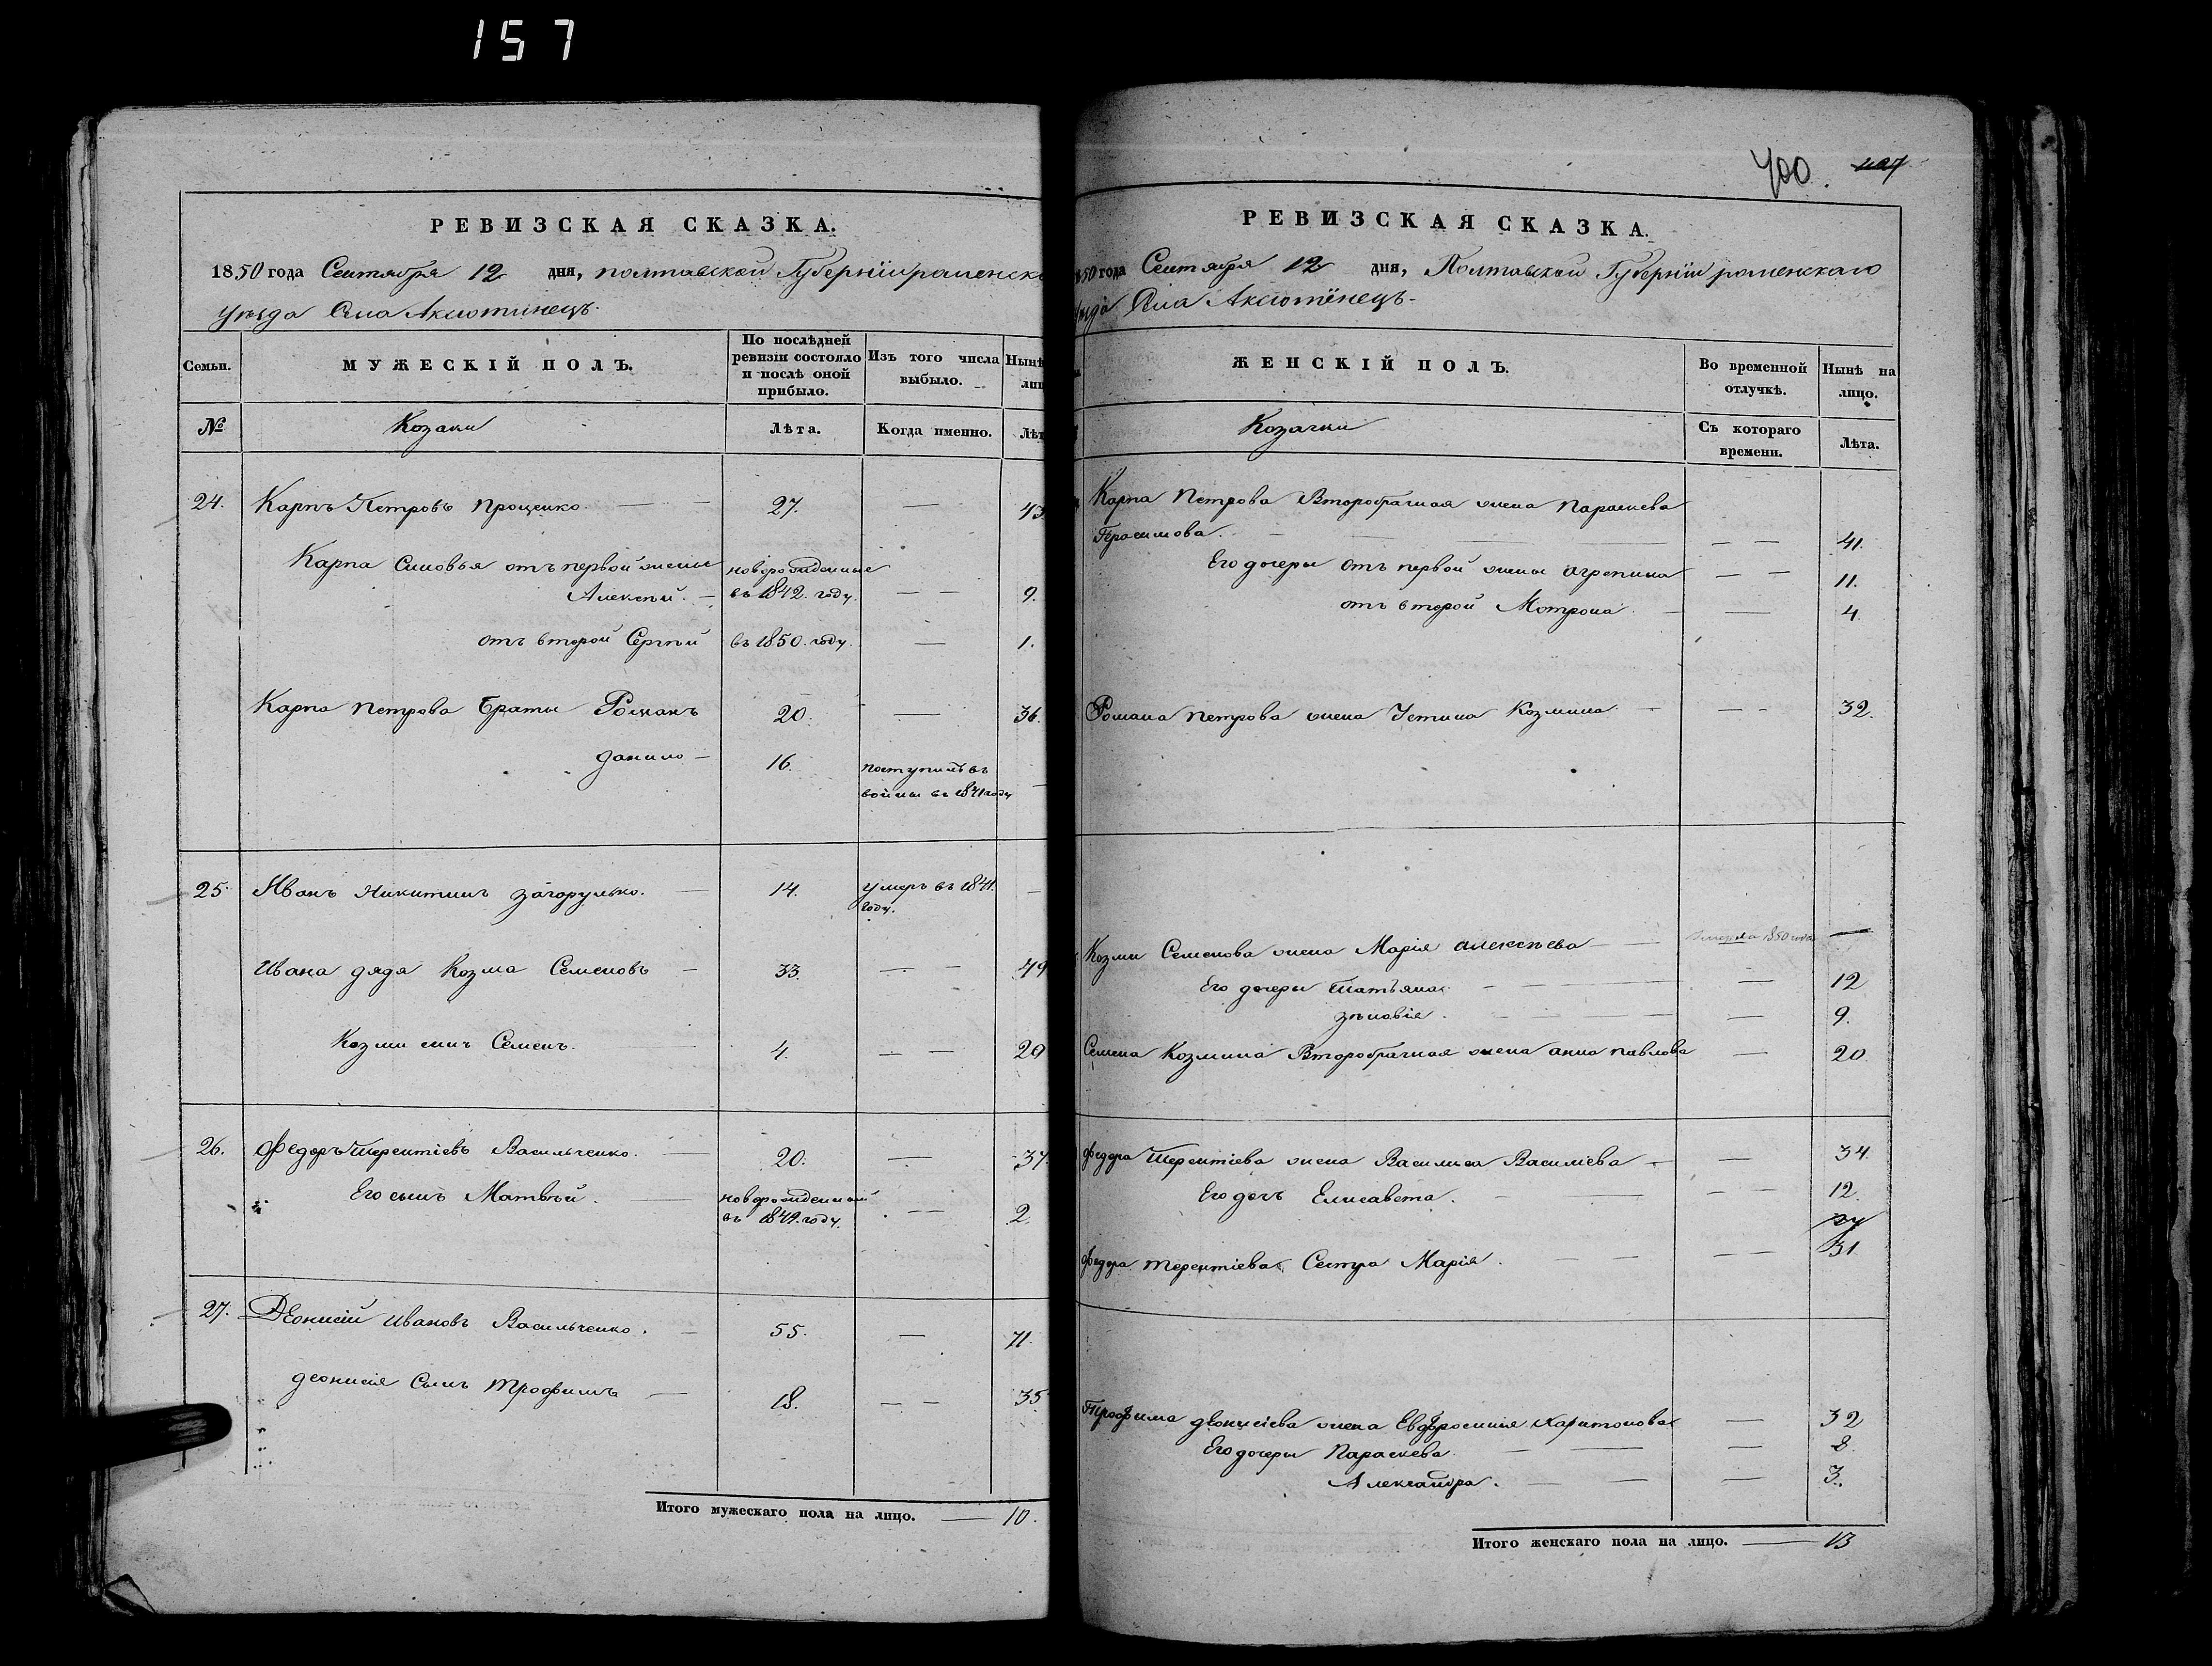 157
РЕВИЗСКАЯ СКАЗКА.
1850 года Сентября 12 дня, полтавской Губернiи роменско
уѣзда Села Аксютинецъ.
Семьи.
МУЖЕСКIЙ ПОЛЪ.
По послѣдней ревизiи состояло и послѣ оной прибыло.
Изъ того числа выбыло.
Нынѣ
№
Козаки
Лѣта.
Когда именно.
Лѣт
24. Карпъ Петровъ Проценко — 27. — 43
Карпа Синовья отъ первой жены новорожденные
Алексѣй. — въ 1842. году. — — 9.
отъ второй Сергѣй въ 1850. году. — 1.
Карпа Петрова Браты Романъ 20. — 36.
Данило — 16. поступилъ въ
воины въ 1841 году —
25. Иванъ Никитинъ Загорулько. — 14. умеръ въ 1841. —
году.
Ивана дядя Козма Семеновъ — 33. — — 49
Козми синъ Семенъ. 4. — — 20
26. Федоръ Терентiевъ Васильченко. — 20. — 37.
Его сынъ Матвѣй. — новорожденный
въ 1849. году. — — 2.
27. Деонисiй Ивановъ Васильченко. — 55. — 71.
Деонисiя Сынъ Трофимъ — 18. — — 35
Итого мужескаго пола на лицо. — 10.
400. 497
РЕВИЗСКАЯ СКАЗКА.
850 года Сентября 12 дня, Полтавской Губернiи роменскаго
уѣзда Села Аксютинецъ.
ЖЕНСКIЙ ПОЛЪ.
Во временной отлучкѣ.
Нынѣ на лицо.
Козачки
Съ котораго времени.
Лѣта.
Карпа Петрова Второбрачная жена Параскева
Герасимова. — — — 41.
Его дочеры отъ первой жены Агрепина — — 11.
отъ второй Мотрона — — 4.
Романа Петрова жена Устина Козмина — — - 32.
Козми Семенова жена Марiя Алексѣева — умерла 1850 года —
Его дочеры Татьяна — — 12
Зѣновiя. — — 9.
Семена Козмина Второбрачная жена Анна Павлова — 20
Федора Терентiева жена Василиса Василiева — — 34
Его дочъ Елисавета. — — — 12.
27
Федора Терентiева Сестра Марiя. — — — 31
Трофима Деонисiева жена Евфросинiя Харитонова — 32
Его дочеры Параскева — — 8.
Александра. — — 3.
Итого женскаго пола на лицо. — 13